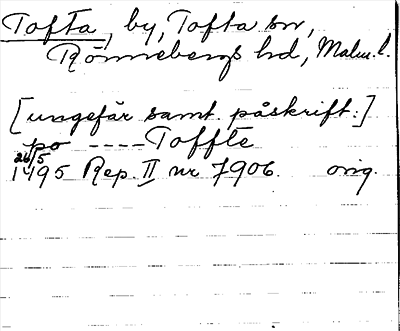 Tofta, by, Tofta sn,
Rönnebergs hd, Malm. l.
[ungefär samt. påskrift:]
po ---- Toffte
26/5
1495 Rep. II nr 7906. orig.